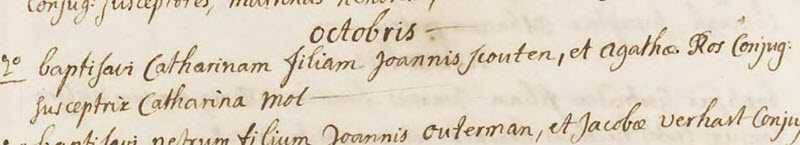 Conjug: susceptores, Matthias
octobris
2º baptisavi Catharinam filiam Joannis scouten, et agathæ Ros Conjug:
susceptrix Catharina mol
baptisavi petrum filium Joannis outerman, et Jacobæ verhart Conju